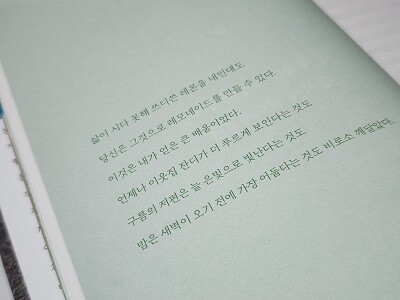 삶이 시다 못해 쓰디쓴 레몬을 내민대도
당신은 그것으로 레모네이드를 만들 수 있다.
이것은 내가 얻은 큰 배움이었다.
언제나 이웃집 잔디가 더 푸르게 보인다는 것도
구름의 저편은 늘 은빛으로 빛난다는 것도
밤은 새벽이 오기 전에 가장 어둡다는 것도 비로소 깨달았다.